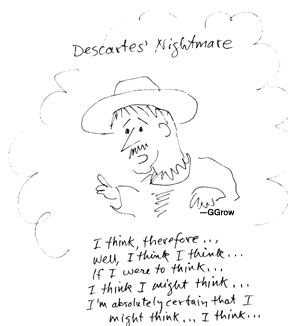 Descartes' Nightmare
—GGrow
I think, therefore...
Well, I think I think...
If I were to think...
I think I might think...
I'm absolutely certain that I
might think... I think...